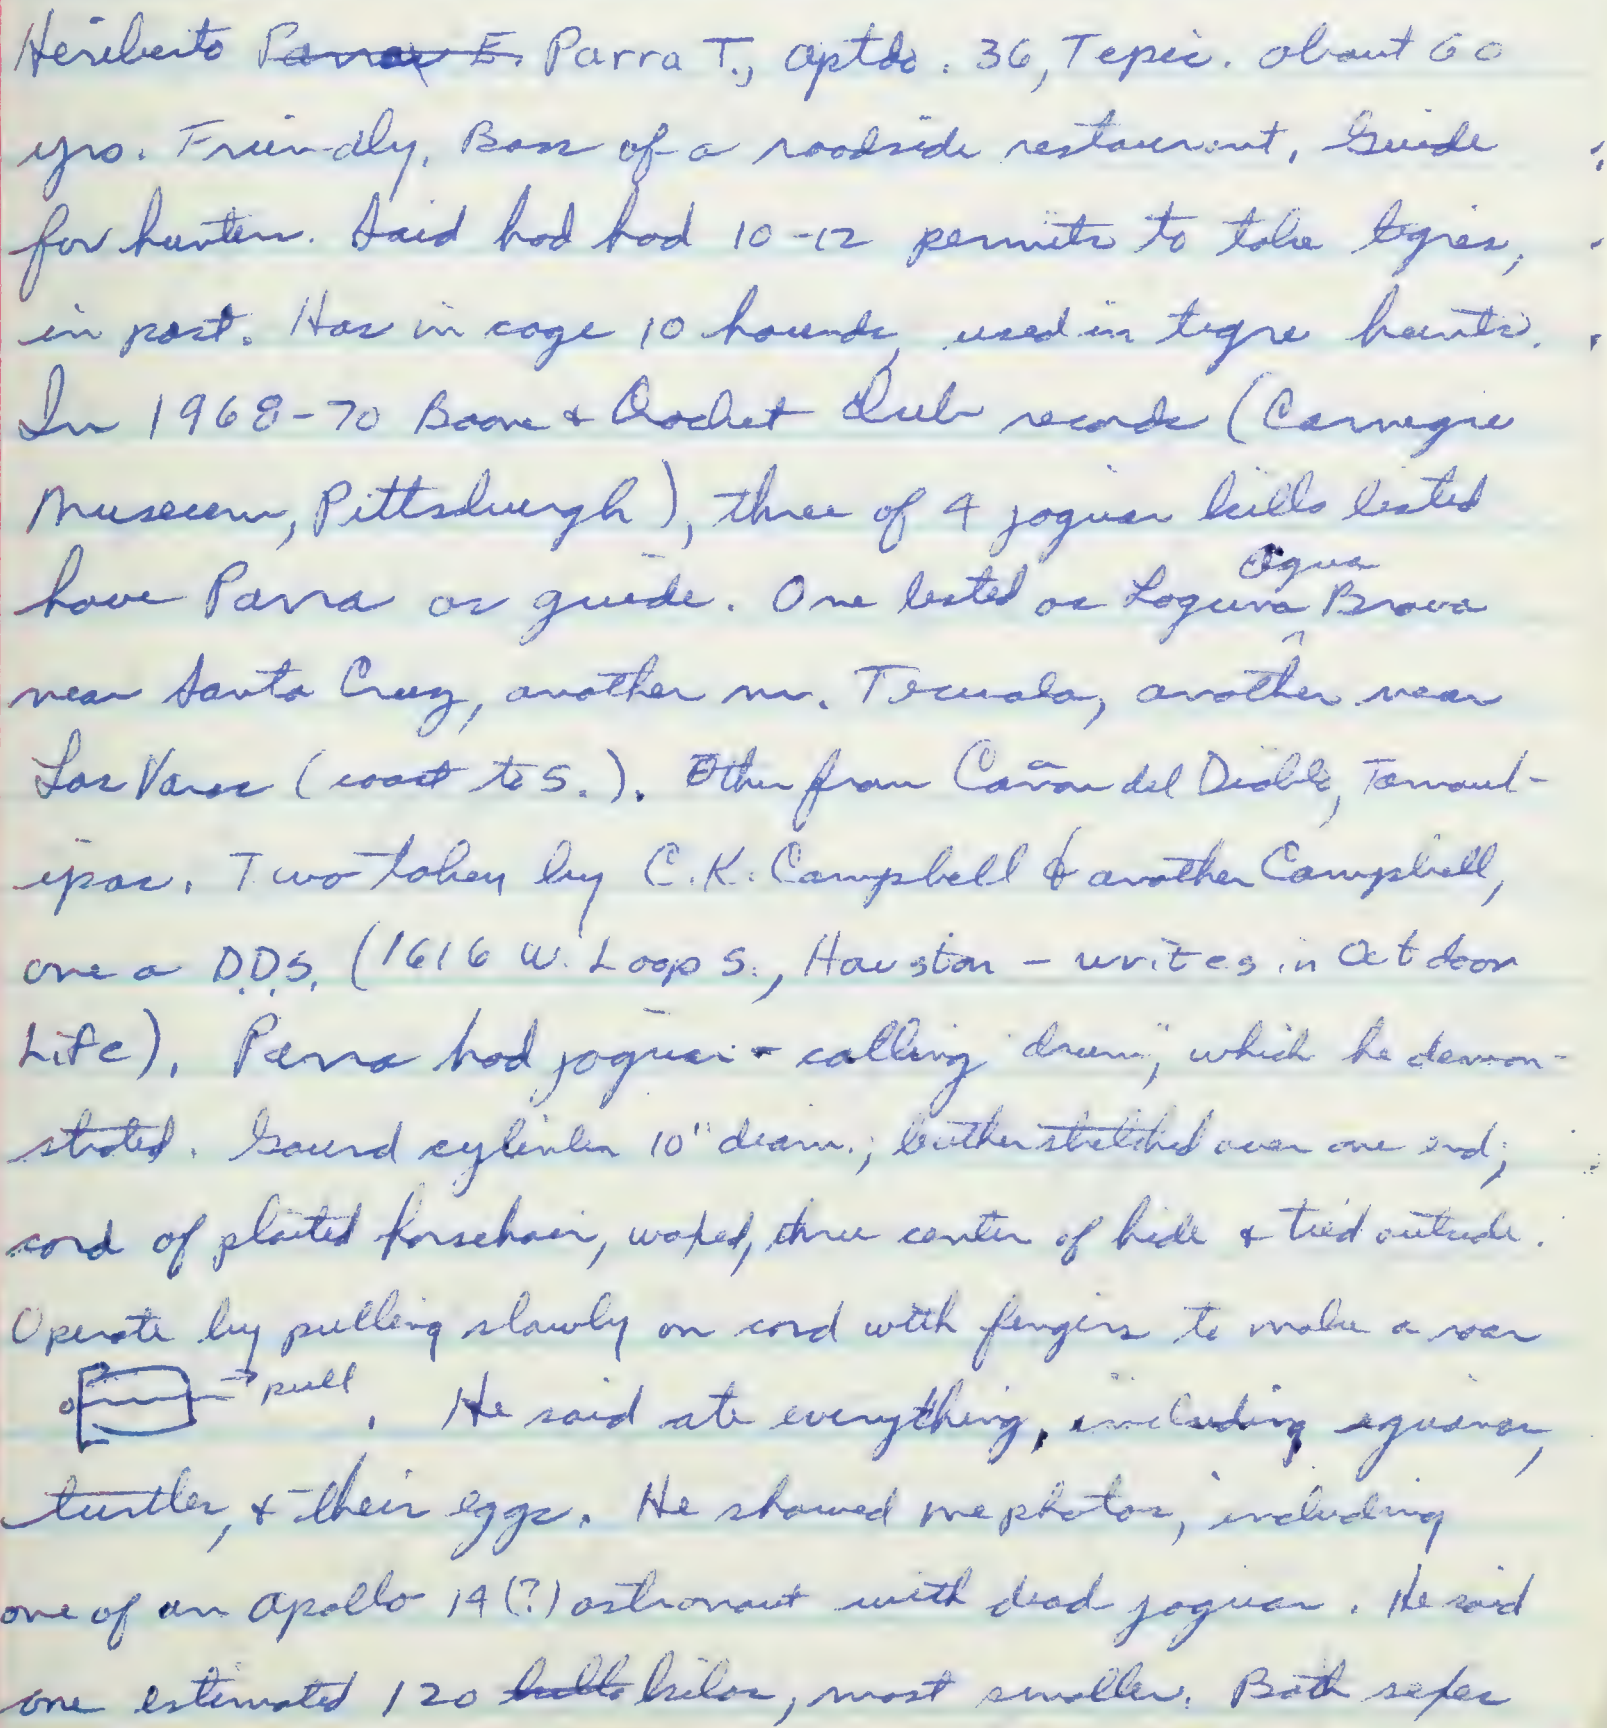 Heriberto Parra E. Parra T., Aptdo. 36, Tepic. About 60
yrs. Friendly. Boss of a roadside restaurant. Guide
for hunters. Said had had 10-12 permits to take tigres,
in past. Has in cage 10 hounds, used in tigre hunts.
In 1968-70 Boone & Crocket Club records (Carnegie
Museum, Pittsburgh), three of 4 jaguar kills listed
have Parra as guide. One listed as Laguna Agua Brava
near Santa Cruz, another nr. Tecuala, another near
Las Varas (coast to S.). Other from Cañon del Diablo, Tamaul-
ipas. Two taken by C.K. Campbell & another Campbell,
one a D.D.S. (1616 W. Loop S., Houston - writes in Outdoor
Life). Parra had jaguar-calling "drum", which he demon-
strated. Gourd cylinder 10" diam.; leather stretched over one end;
cord of plaited horsehair, waxed, thru center of hide & tied outside.
Operate by pulling slowly on cord with fingers to make a roar
→ pull . He said ate everything, including iguanas,
turtles, & their eggs. He showed me photos, including
one of an Apollo 14 (?) astronaut with dead jaguar. He said
one estimated 120 kills kilos, most smaller. Both sexes